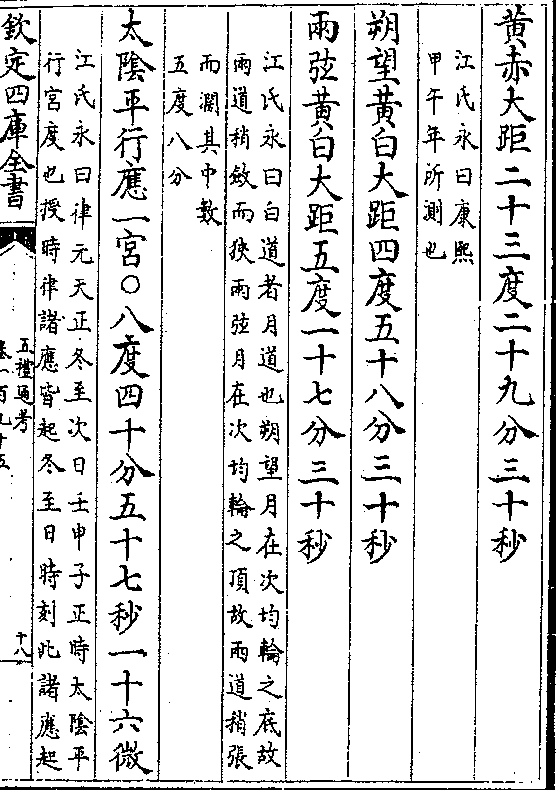 黄赤大距二十三度二十九分三十秒
江氏永曰康熙
甲午年所測也
朔望黄白大距四度五十八分三十秒
兩弦黄白大距五度一十七分三十秒
江氏永曰白道者月道也朔望月在次均輪之底故
兩道稍斂而狹兩弦月在次均輪之頂故兩道稍張
而濶其中數
五度八分
太陰平行應一宮〇八度四十分五十七秒一十六微
江氏永曰律元天正冬至次日壬申子正時太陰平
行宮度也授時律諸應皆起冬至日時刻此諸應起
欽定四庫全書
五禮通考
卷一百九十五
十八